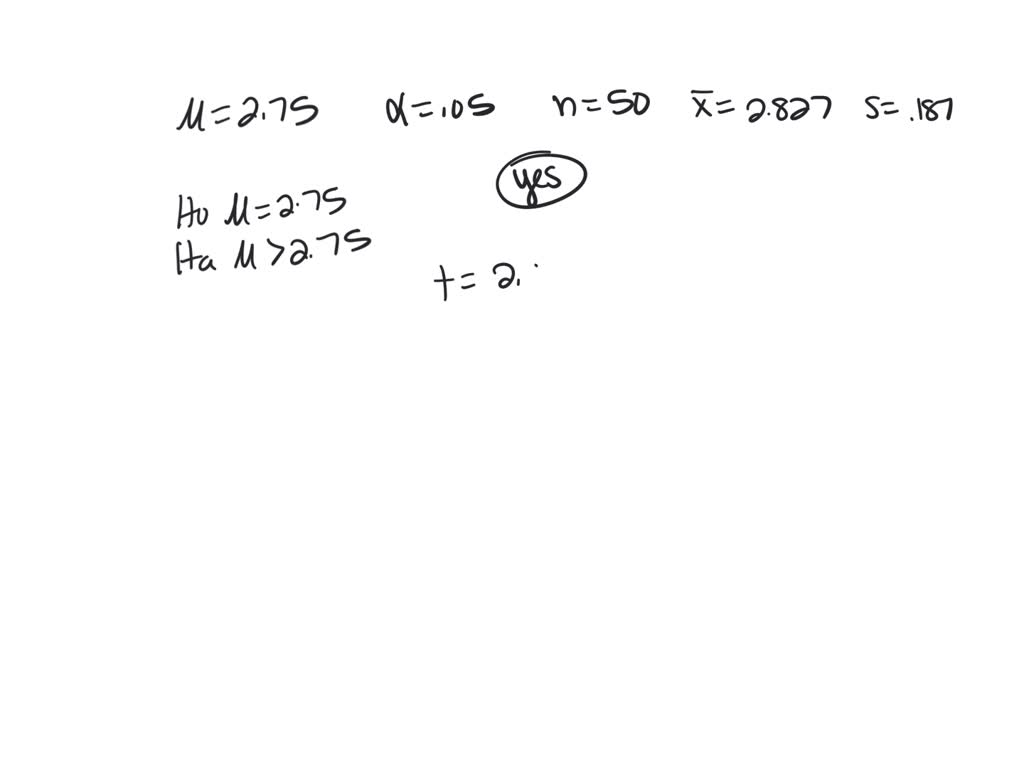 μ=2.75 α=.05 n=50 x̄=2.827 s=.187
yes
Ho μ=2.75
Ha μ>2.75
t=2.